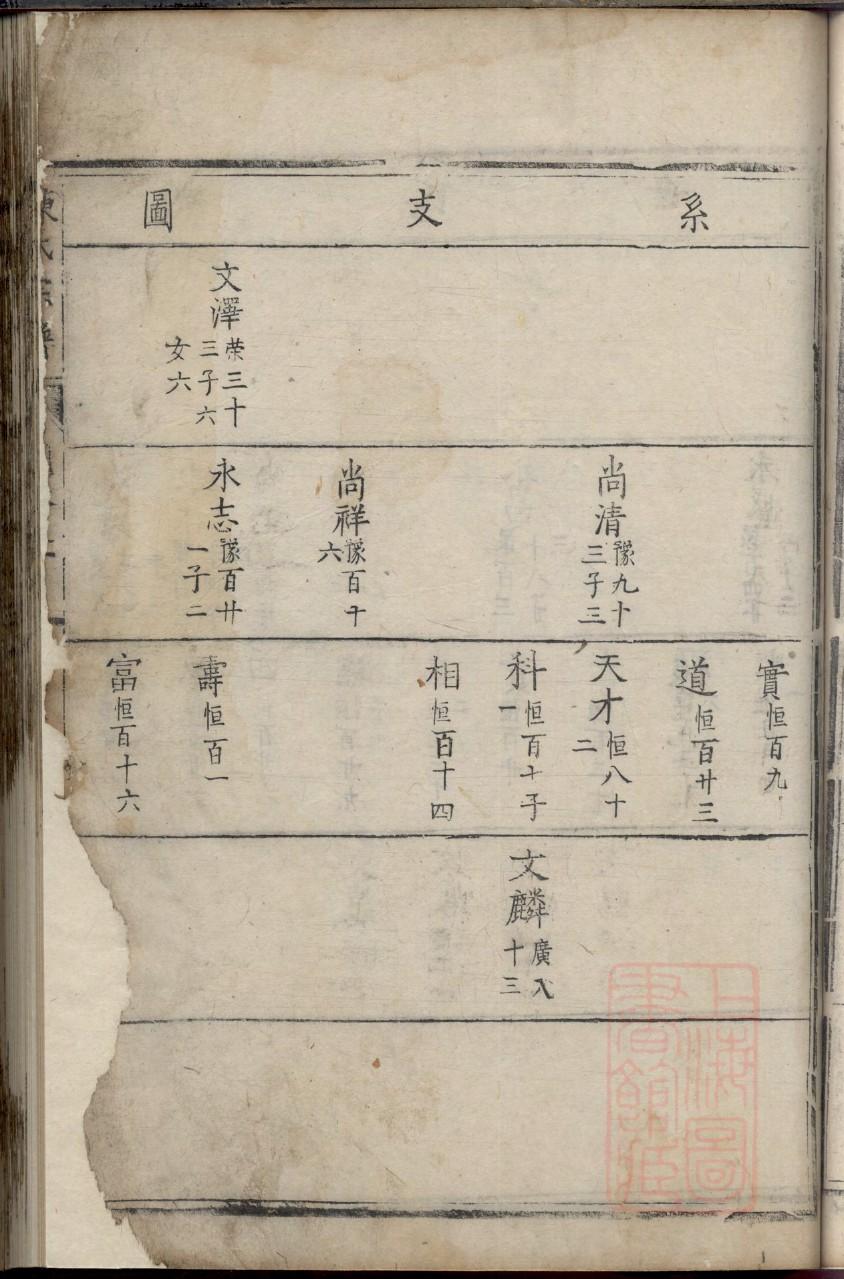 系支圖
文澤
荣三十
三子六
女六
尚清
豫九十
三子三
尚祥
豫百十
六
永志
豫百廿
一子二
實恒百九
道恒百廿三
天才
恒八十
二
科
恒百十子
一
相恒百十四
壽恒百一
富恒百十六
文麟
廣八
十三
氏宗譜
上海圖
書館藏